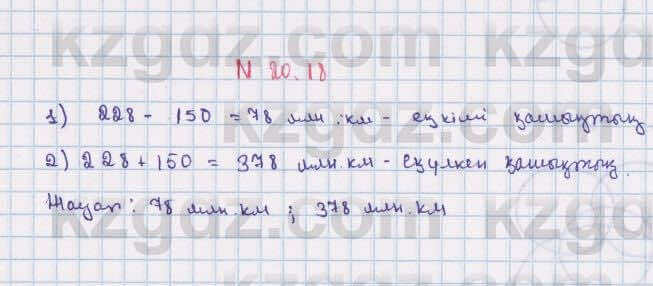 kzgdz.com kzgdz
N 20.18
1) 228 - 150 = 78 млн.км - ең кіші қашықтық
kzgdz.com kzgdz
2) 228 + 150 = 378 млн.км - ең үлкен қашықтық.
Жауап: 78 млн.км ; 378 млн.км
kzgdz.com kzgdz